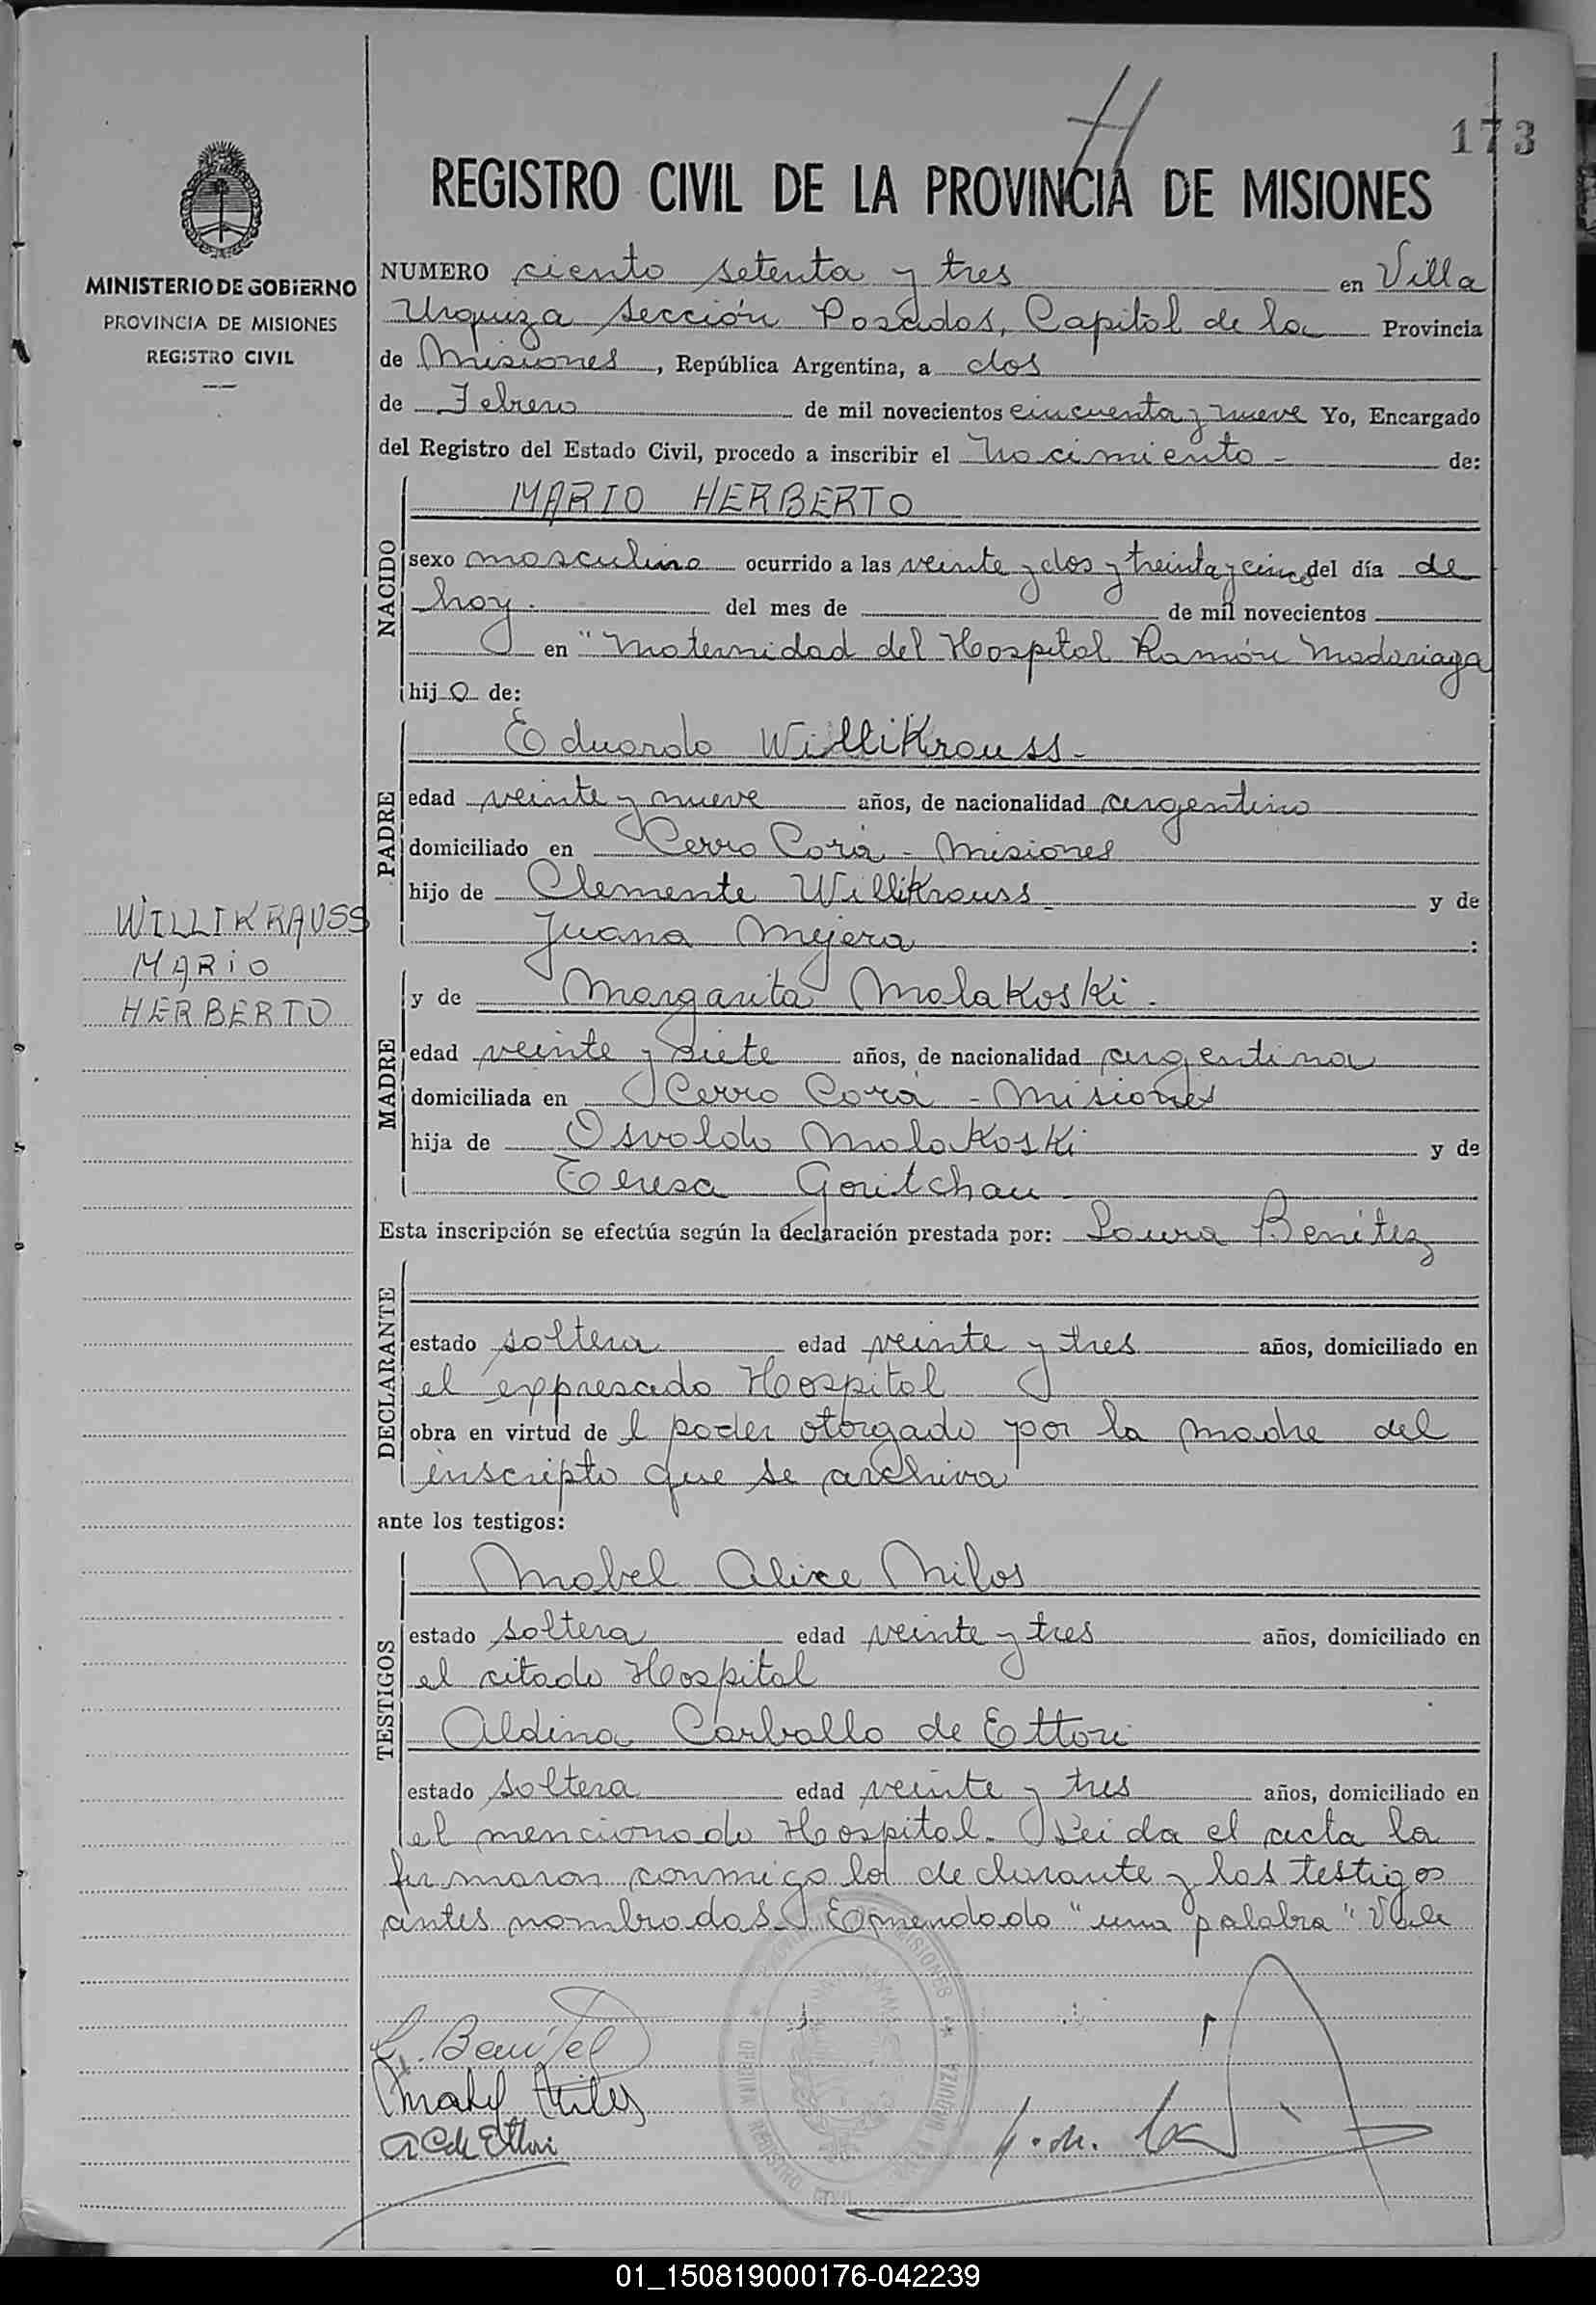 173
REGISTRO CIVIL DE LA PROVINCIA DE MISIONES
MINISTERIO DE GOBIERNO
PROVINCIA DE MISIONES
REGISTRO CIVIL
NUMERO ciento setenta y tres en Villa
Urquiza Sección Posadas, Capital de la Provincia
de Misiones, República Argentina, a dos
de Febrero de mil novecientos cincuenta y nueve Yo, Encargado
del Registro del Estado Civil, procedo a inscribir el Nacimiento - de:
NACIDO
MARIO HERBERTO
sexo masculino ocurrido a las veinte y dos y treinta y cinco del día de
hoy. del mes de de mil novecientos
en "Maternidad del Hospital Ramón Madariaga
hijo de:
PADRE
Eduardo WilliKrauss-
edad veinte y nueve años, de nacionalidad argentino
domiciliado en Cerro Corá - Misiones
hijo de Clemente WilliKrauss - y de
Juana Mejera :
WILLIKRAUSS
MARIO
HERBERTO
MADRE
y de Margarita MalaKosKi -
edad veinte y siete años, de nacionalidad argentina
domiciliada en Cerro Corá - Misiones
hija de Osvaldo MalaKosKi y de
Teresa Goritchau
Esta inscripción se efectúa según la declaración prestada por: Laura Benítez
DECLARANTE
estado soltera edad veinte y tres años, domiciliado en
el expresado Hospital
obra en virtud de l poder otorgado por la madre del
inscripto que se archiva
ante los testigos:
TESTIGOS
Mabel Alice Milos
estado soltera edad veinte y tres años, domiciliado en
el citado Hospital
Aldina Carballo de Ettori
estado soltera edad veinte y tres años, domiciliado en
el mencionado Hospital. Leida el acta la
firmaron conmigo la declarante y los testigos
antes nombrados. Enmendado "una palabra" Vale
L. Benítez
Mabel Milos
A C de Ettori
01_150819000176-042239